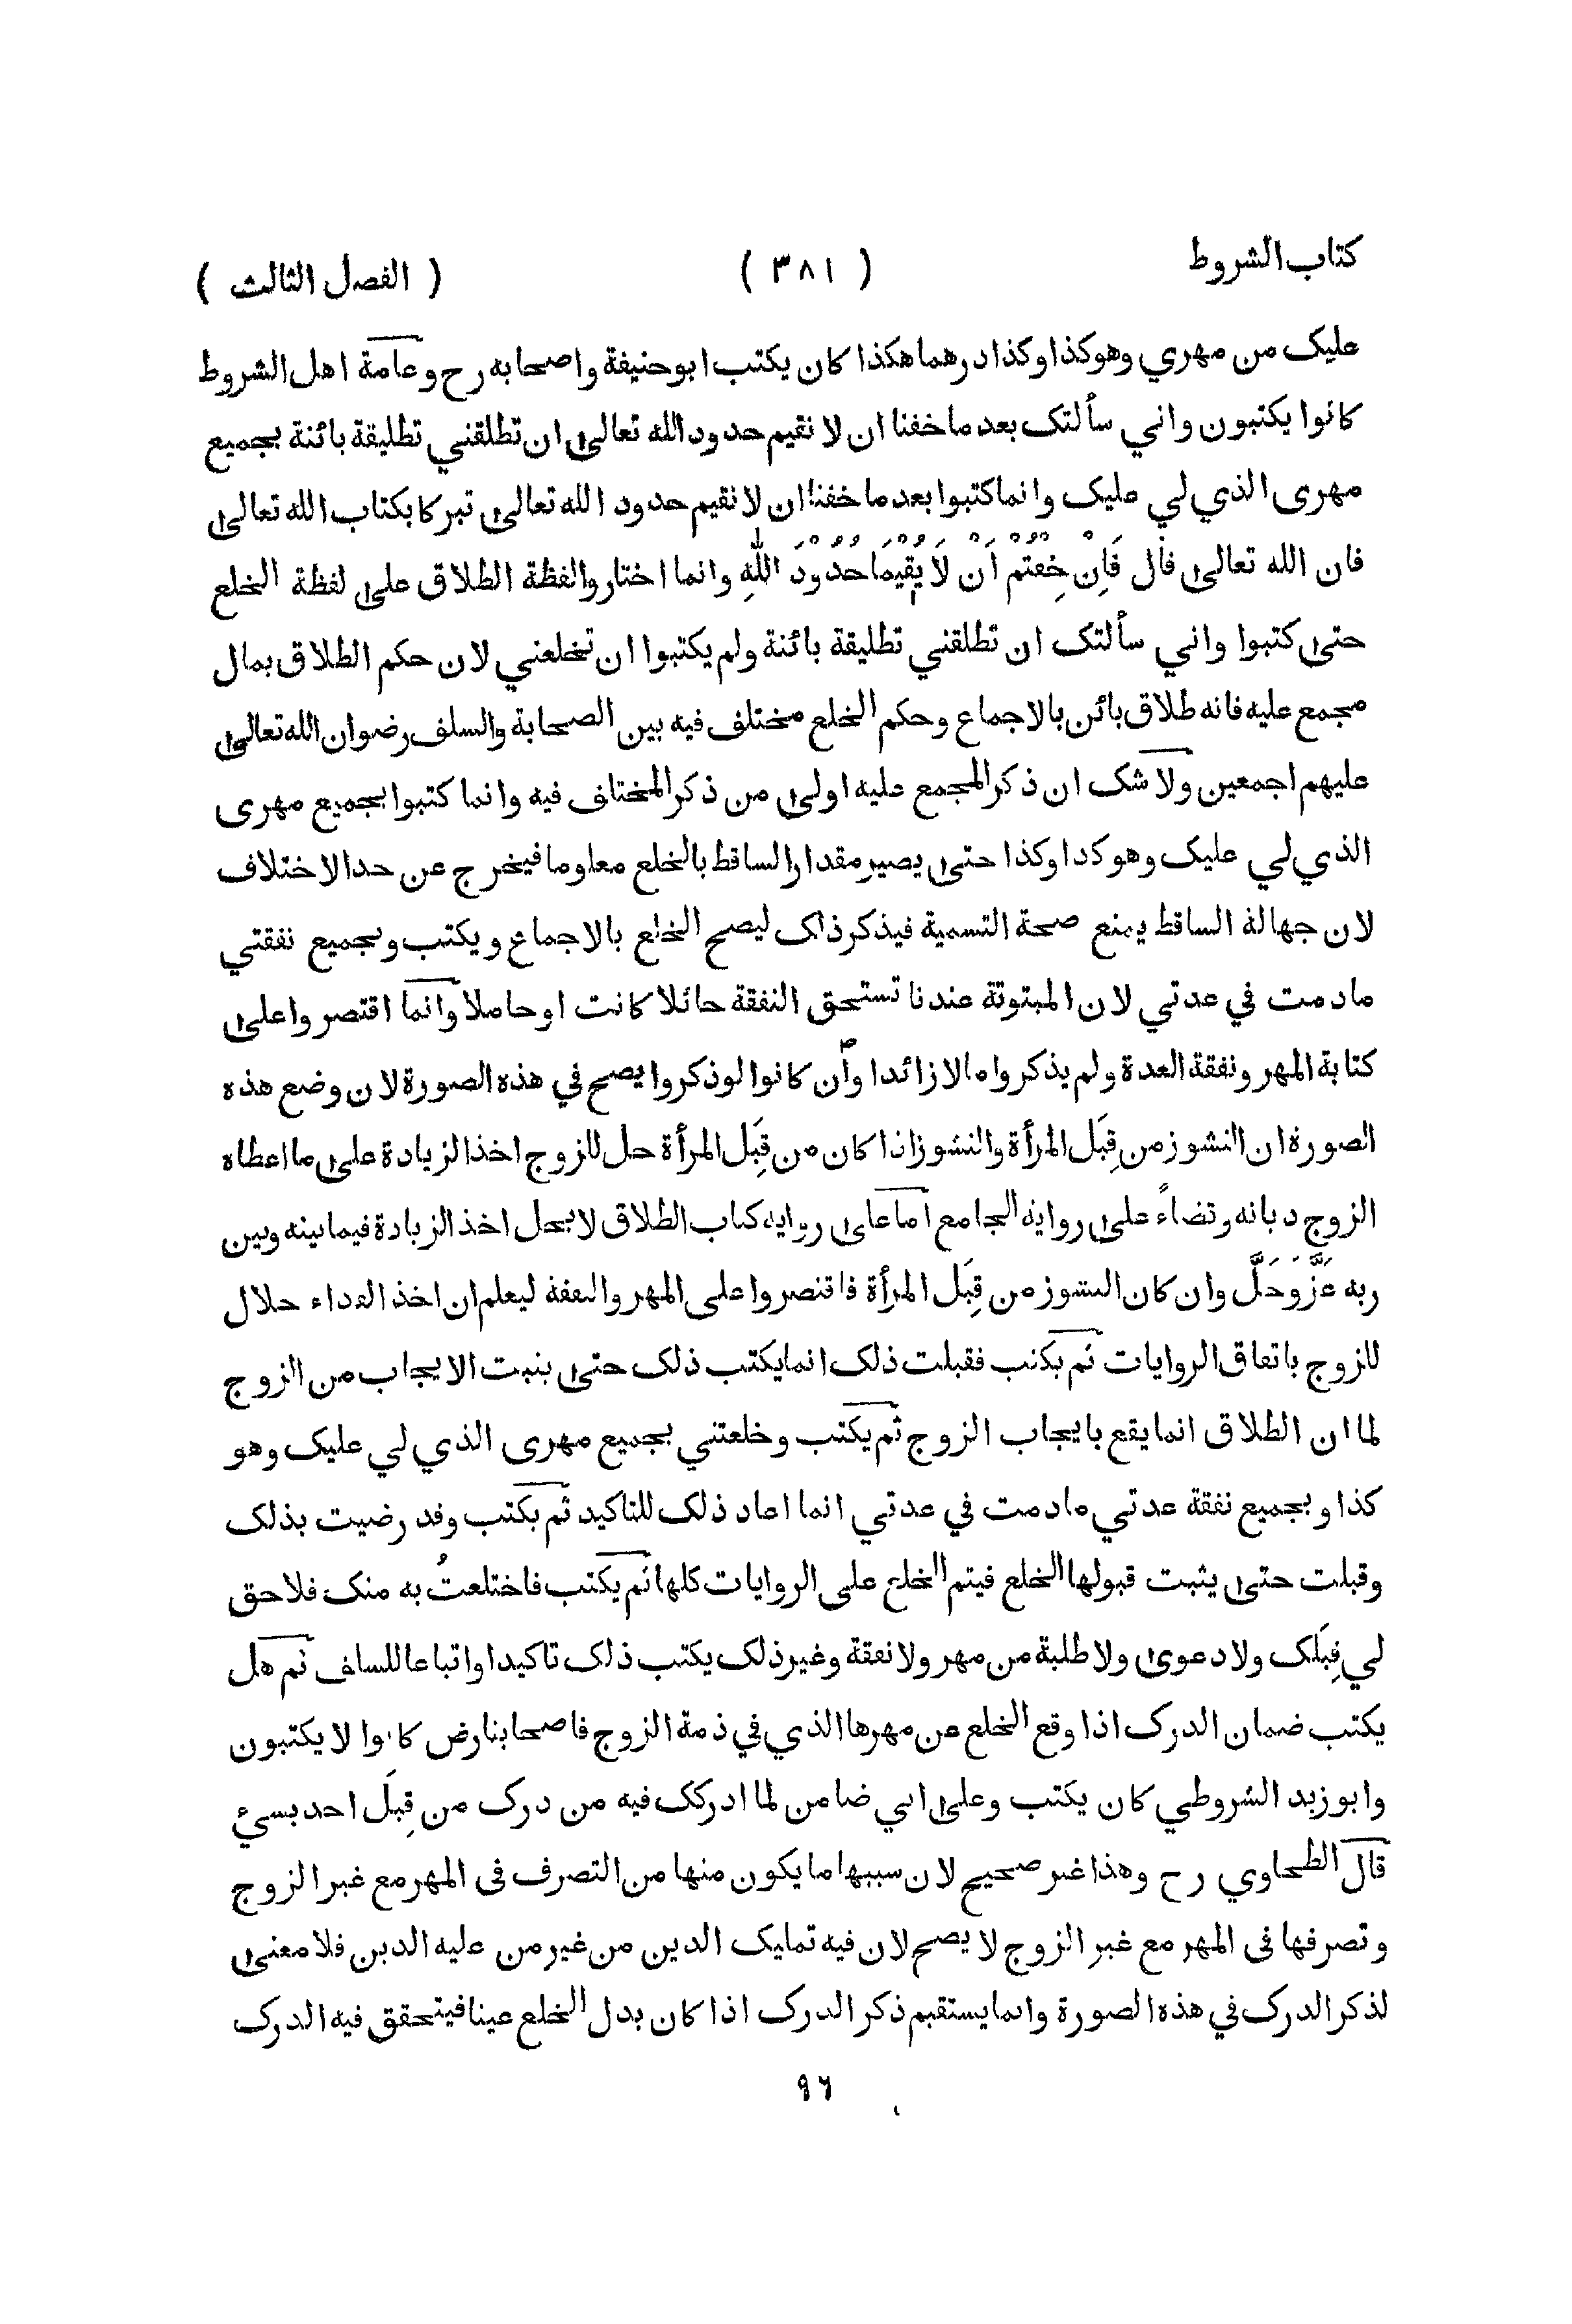 كتاب الشروط ( ٣٨١ ) ( الفصل الثالث )
عليك من مهري وهو كذا وكذا درهما هكذا كان يكتب ابو حنيفة واصحابه رح وعامة اهل الشروط
كانوا يكتبون واني سألتك بعد ما خفنا ان لا نقيم حدود الله تعالى ان تطلقني تطليقة بائنة بجميع
مهرى الذي لي عليك وانما كتبوا بعد ما خفنا ان لا نقيم حدود الله تعالى تبركا بكتاب الله تعالى
فان الله تعالى قال فَاِنْ خِفْتُمْ اَنْ لَا يُقِيْمَا حُدُوْدَ اللّٰهِ وانما اختاروا لفظة الطلاق على لفظة الخلع
حتى كتبوا واني سألتك ان تطلقني تطليقة بائنة ولم يكتبوا ان تخلعني لان حكم الطلاق بمال
مجمع عليه فانه طلاق بائن بالاجماع وحكم الخلع مختلف فيه بين الصحابة والسلف رضوان الله تعالى
عليهم اجمعين ولا شك ان ذكر المجمع عليه اولى من ذكر المختلف فيه وانما كتبوا بجميع مهرى
الذي لي عليك وهو كذا وكذا حتى يصير مقدار الساقط بالخلع معلوما فيخرج عن حد الاختلاف
لان جهالة الساقط يمنع صحة التسمية فيذكر ذلك ليصح الخلع بالاجماع ويكتب وبجميع نفقتي
ما دمت في عدتي لان المبتوتة عندنا تستحق النفقة حائلا كانت او حاملا وانما اقتصروا على
كتابة المهر ونفقة العدة ولم يذكروا مالا زائدا وأن كانوا لو ذكروا يصح في هذه الصورة لان وضع هذه
الصورة ان النشوز من قِبَل المرأة والنشوز اذا كان من قِبَل المرأة حل للزوج اخذ الزيادة على ما اعطاه
الزوج ديانه وقضاءً على رواية الجامع اما على رواية كتاب الطلاق لا يحل اخذ الزيادة فيما بينه وبين
ربه عَزَّ وَجَلَّ وان كان النشوز من قِبَل المرأة فاقتصروا على المهر والنفقة ليعلم ان اخذ الفداء حلال
للزوج باتفاق الروايات ثم يكتب فقبلت ذلك انما يكتب ذلك حتى يثبت الايجاب من الزوج
لما ان الطلاق انما يقع بايجاب الزوج ثم يكتب وخلعتني بجميع مهرى الذي لي عليك وهو
كذا وبجميع نفقة عدتي ما دمت في عدتي انما اعاد ذلك للتاكيد ثم يكتب وقد رضيت بذلك
وقبلت حتى يثبت قبولها الخلع فيتم الخلع على الروايات كلها ثم يكتب فاختلعتُ به منك فلا حق
لي قِبَلك ولا دعوى ولا طلبة من مهر ولا نفقة وغير ذلك يكتب ذلك تاكيدا واتباعا للسلف ثم هل
يكتب ضمان الدرك اذا وقع الخلع عن مهرها الذي في ذمة الزوج فاصحابنا رض كانوا لا يكتبون
وابو زيد الشروطي كان يكتب وعلى اني ضامن لما ادركك فيه من درك من قِبَل احد بسيء
قال الطحاوي رح وهذا غير صحيح لان سببها ما يكون منها من التصرف فى المهر مع غير الزوج
وتصرفها فى المهر مع غير الزوج لا يصح لان فيه تمليك الدين من غير من عليه الدين فلا معنى
لذكر الدرك في هذه الصورة وانما يستقيم ذكر الدرك اذا كان بدل الخلع عينا فيتحقق فيه الدرك
٩٦